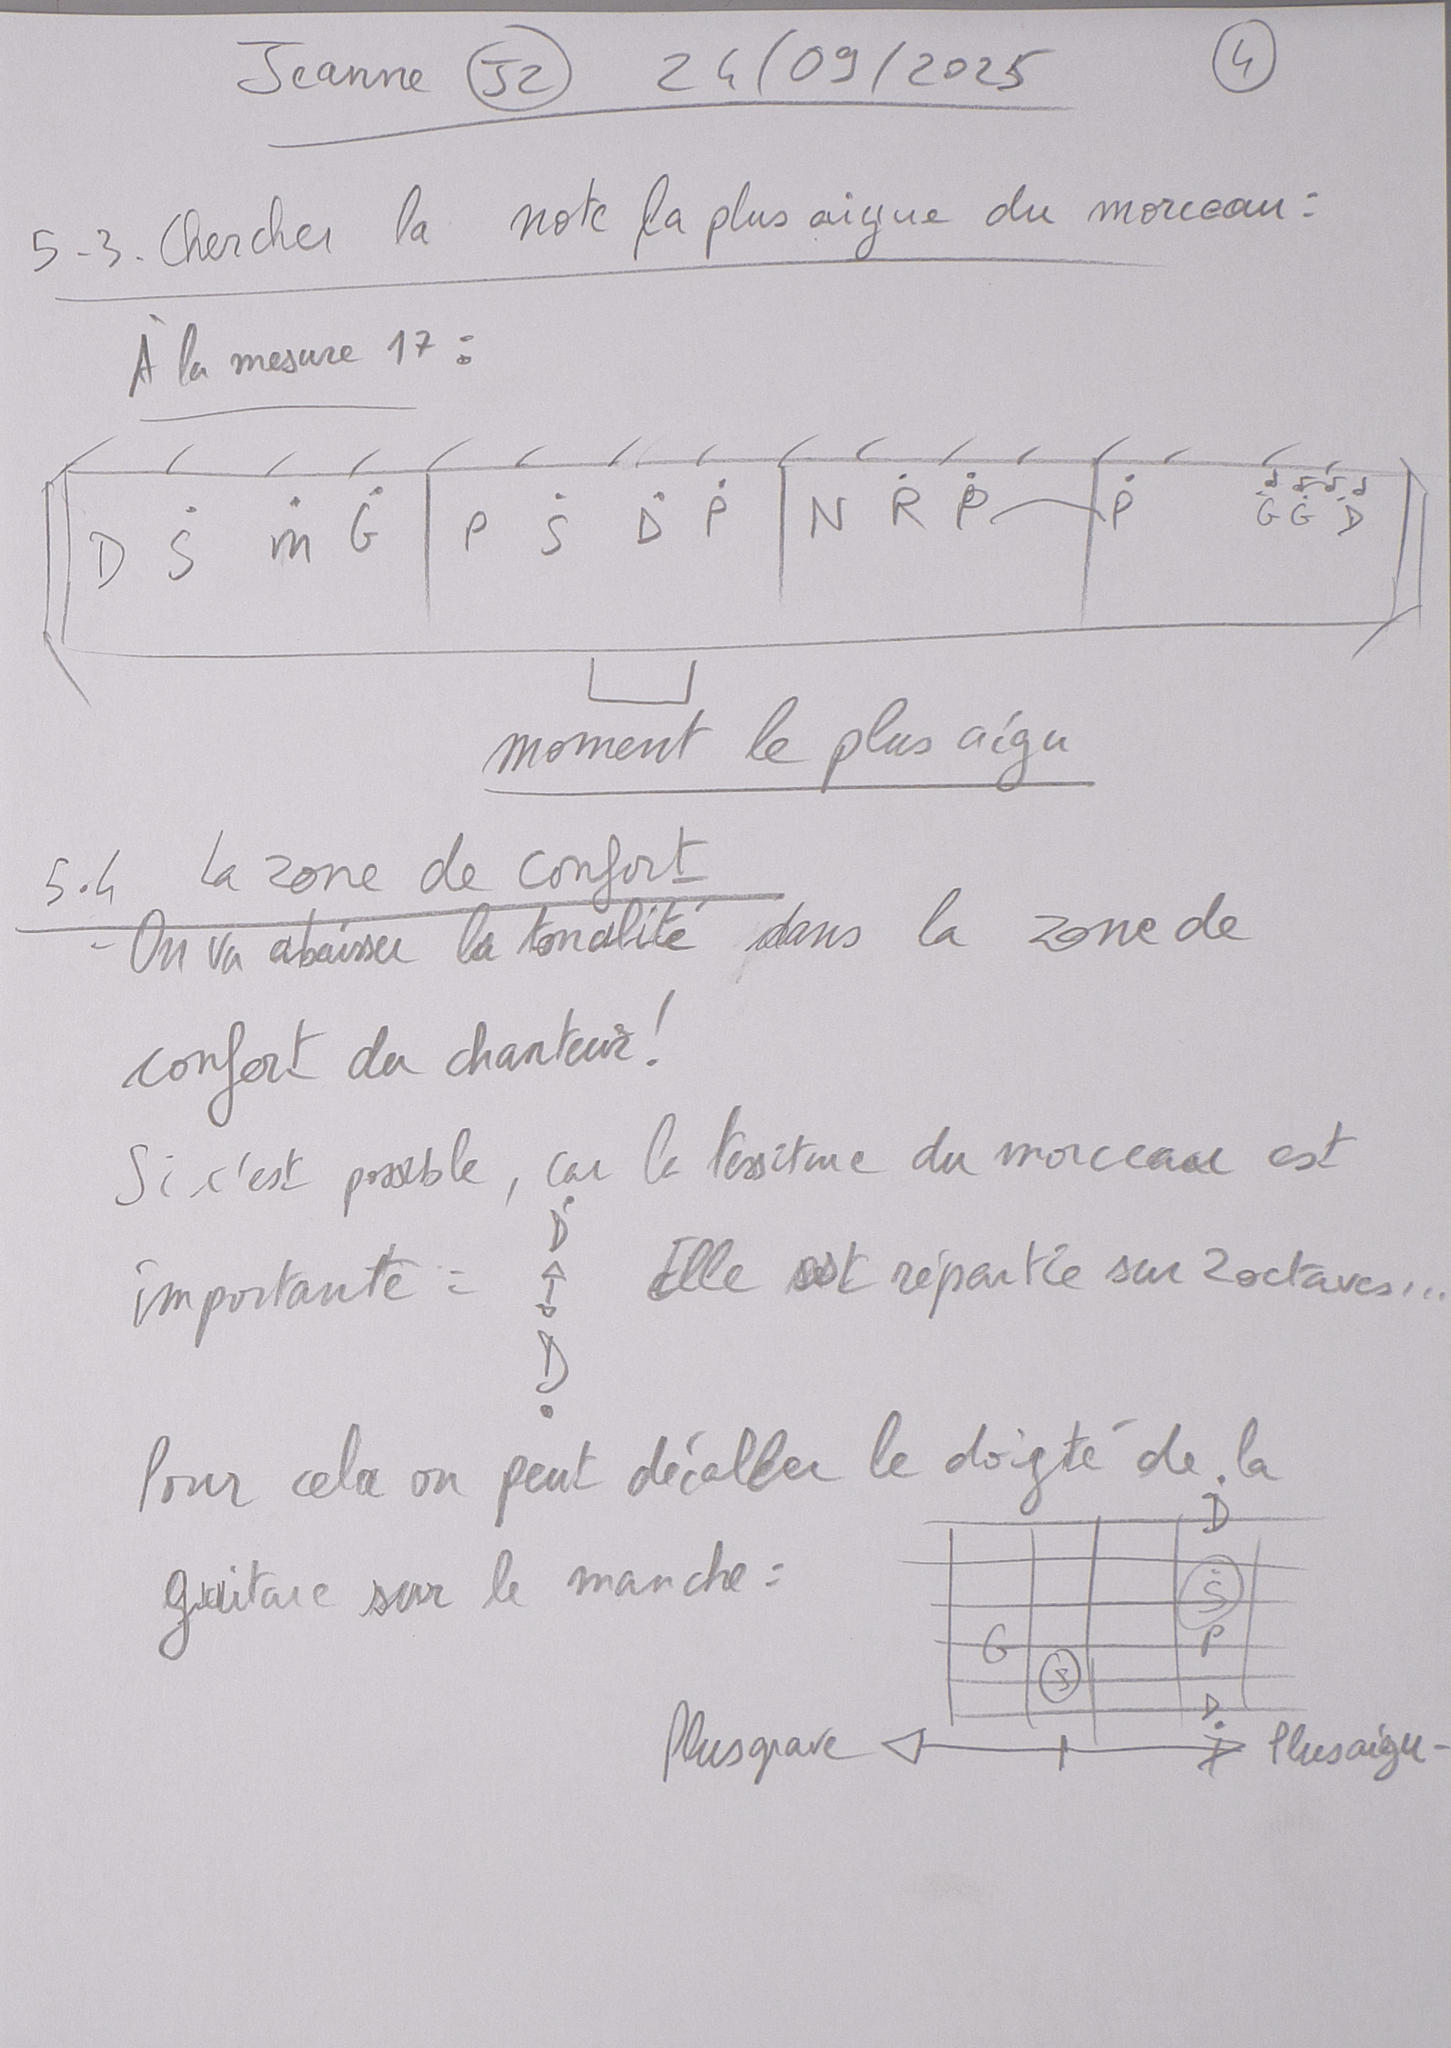 Jeanne J2 24/09/2025 4
5-3. Chercher la note la plus aigue du morceau :
À la mesure 17 :
D Ṡ ṁ Ġ P Ṡ Ḋ Ṗ N Ṙ Ṗ Ṗ Ġ Ġ Ḋ
moment le plus aigu
5.4 La zone de confort
- On va abaisser la tonalité dans la zone de
confort du chanteur !
Si c'est possible, car la tessiture du morceau est
Ḋ
importante = Elle est répartie sur 2 octaves...
Ḍ
Pour cela on peut décaller le doigté de la
Ḋ
guitare sur le manche :
Ṡ
G P
S
Ḍ
Plus grave Plus aigu